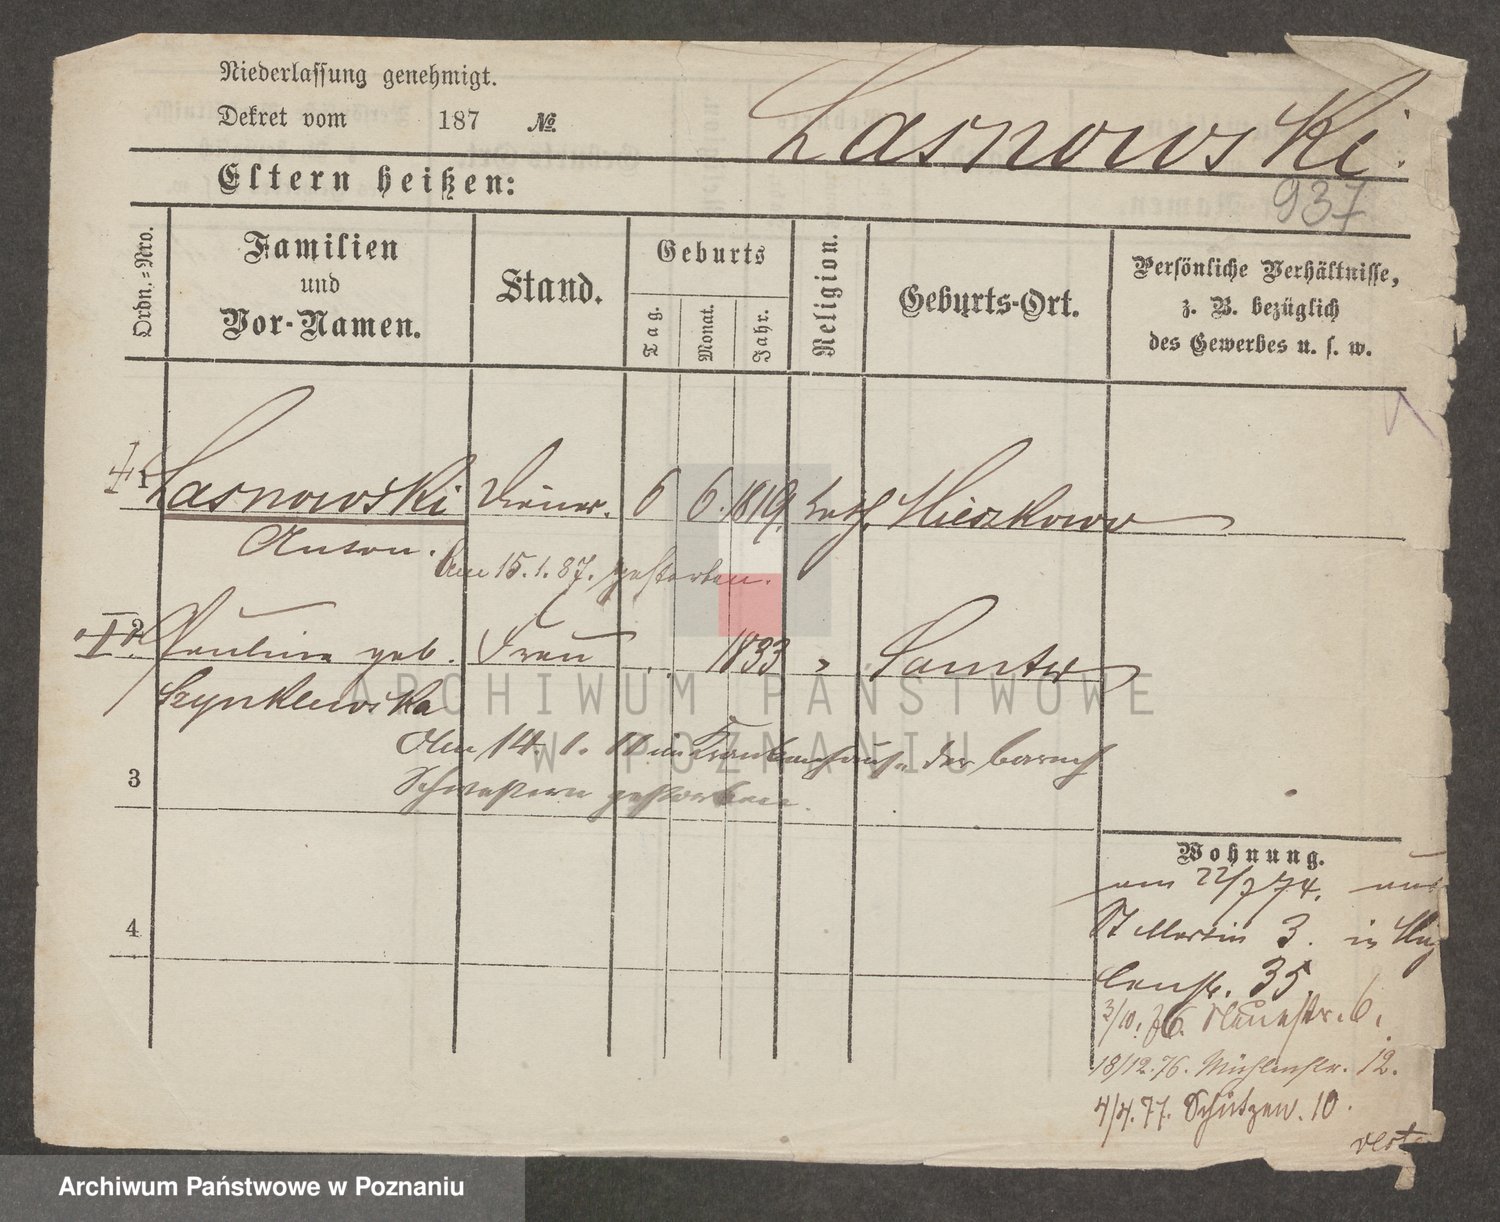 Niederlassung genehmigt.
Dekret vom 187 №
Lasnowski.
Eltern heißen:
937
Ordn.-Nro.
Familien
und
Vor-Namen.
Stand.
Geburts
Tag.
Monat.
Jahr.
Religion.
Geburts-Ort.
Persönliche Verhältnisse,
z. B. bezüglich
des Gewerbes u. s. w.
1 Lasnowski Diener. 6 6. 1819. kath. Mieszkowo
Anton.
Am 15.1.87. gestorben.
2 Pauline geb. Frau 1833 " Samter
Szynklewska
Am 14. 1. 11 im Krankenhause der barmh
Schwestern gestorben.
3
4
Wohnung.
am 22/7 74. aus
St Martin 3. in Müh
lenstr. 35.
3/10. 76. Neuestr. 6.
18/12.76. Mühlenstr. 12.
4/4. 77. Schützen. 10.
ARCHIWUM PAŃSTWOWE
W POZNANIU
Archiwum Państwowe w Poznaniu